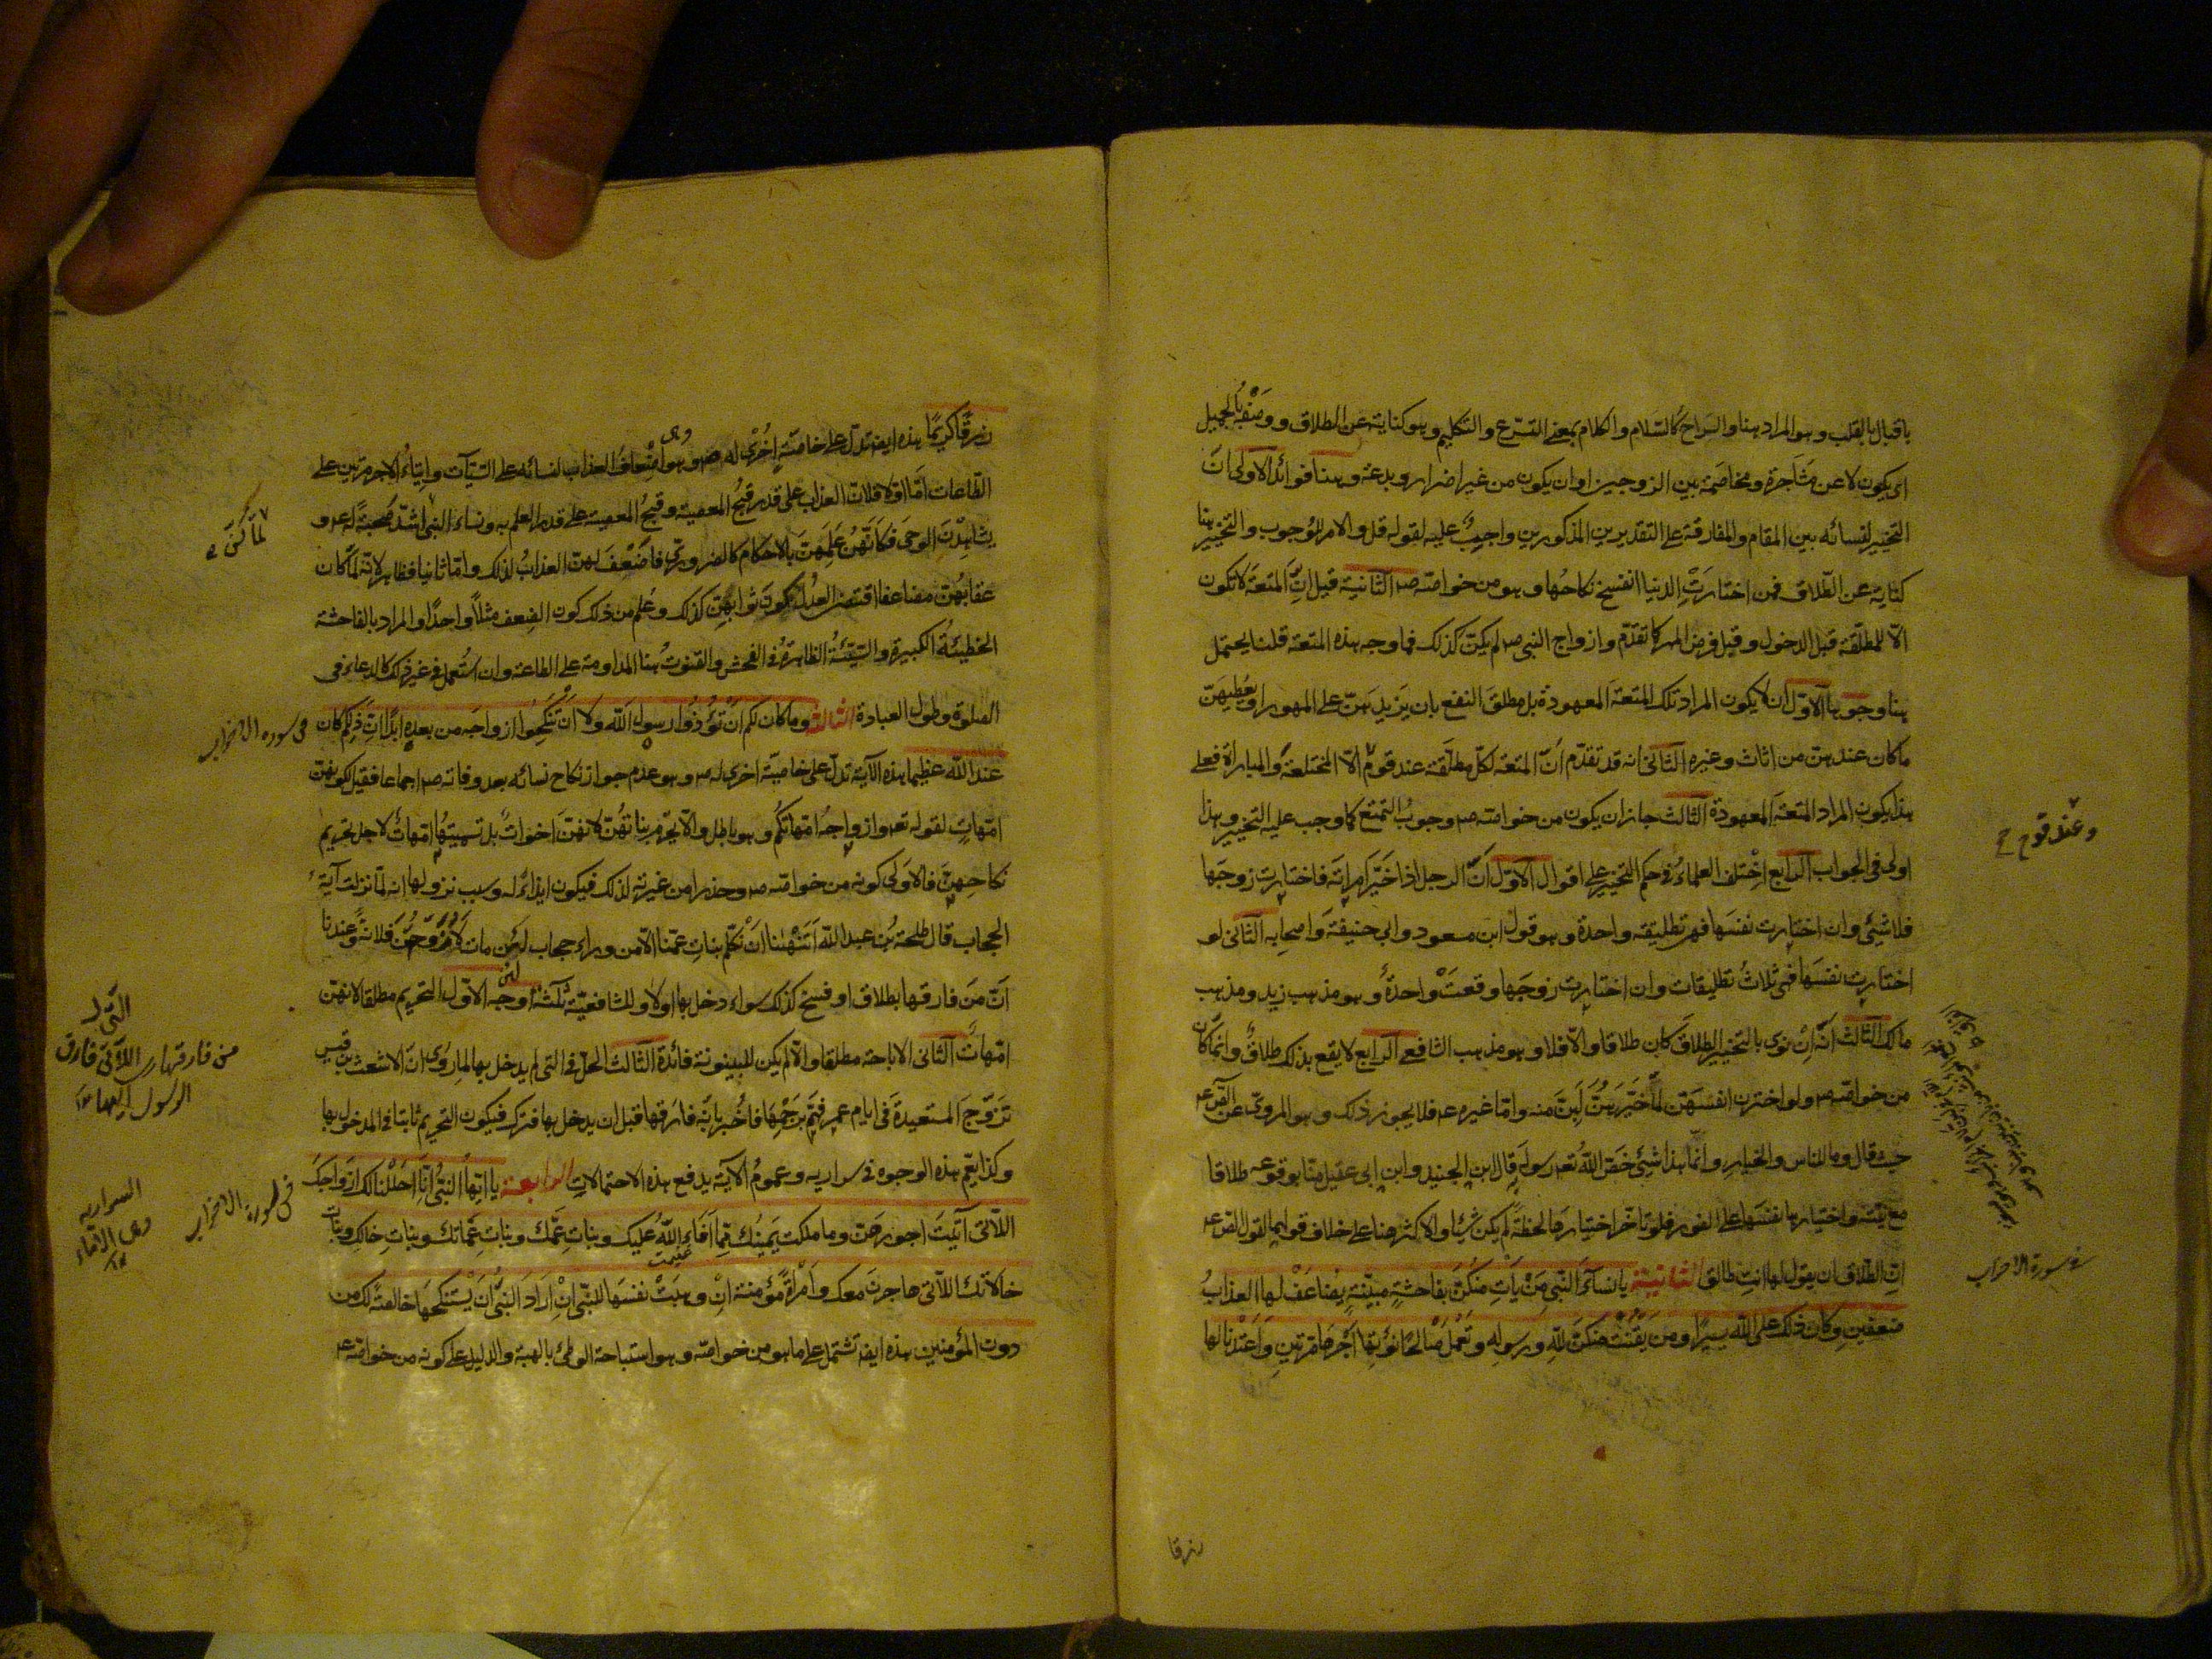 باقبال بالقلب وهو المراد هنا والسراح كالسلام والكلام بمعنى التسرّع والتكليم وهو كناية عن الطلاق ووصفه بالجميل
اى يكون لا عن مشاجرة ومخاصمة بين الزوجين او ان يكون من غير اضرار وبدعة وهنا فوائد الاولى انّ
التخيير لنسائه بين المقام والمفارقة على التقديرين المذكورين واجب عليه لقوله قل والامر للوجوب والتخيير هنا
كناية عن الطّلاق فمن اختارت الدنيا انفسخ نكاحها وهو من خواصّه صم الثانية قيل انّ المتعة لا تكون
الّا للمطلّقة قبل الدخول وقبل فرض المهر كما تقدّم وازواج النبى صم لم يكنّ كذلك فما وجه هذه المتعة قلنا يحتمل
هنا وجوها الاوّل ان لا يكون المراد تلك المتعة المعهودة بل مطلق النفع بان يزيدهنّ على المهور او يعطيهنّ
ما كان عندهنّ من اثاث وغيره الثانى انه قد تقدّم انّ المتعة لكلّ مطلّقة عند قوم الّا المختلعة والمباراة فعلى
هذا يكون المراد المتعة المعهودة الثالث جاز ان يكون من خواصّه صم وجوب التمتع كما وجب عليه التخيير وهذا
اولى فى الجواب الرابع اختلف العلماء فى حكم التخيير على اقوال الاوّل انّ الرجل اذا خيّر امراته فاختارت زوجها
فلا شئ وان اختارت نفسها فهى تطليقة واحدة وهو قول ابن مسعود وابى حنيفة واصحابه الثانى لو
اختارت نفسها فهى ثلاث تطليقات وان اختارت زوجها وقعت واحدة وهو مذهب زيد ومذهب
مالك الثالث انّه ان نوى بالتخيير الطلاق كان طلاقا والّا فلا وهو مذهب الشافعى الرابع لا يقع بذلك طلاق وانّما كان
من خواصّه صم ولو اخترن انفسهنّ لمّا خيّرهنّ لبنّ منه وامّا غيره عم فلا يجوز ذلك وهو المروىّ عن الصّ عم
حيث قال وما للناس والخيار وانّما هذا شئ خصّ الله تعم رسوله قال ابن الجنيد وابن ابى عقيل منّا بوقوعه طلاقا
مع نيّته واختيارها نفسها على الفور فلو تاخّر اختيارها لحظة لم يكن شيئا والاكثر منا على خلاف قولهما لقول الصّ عم
انّ الطّلاق ان يقول لها انتِ طالق الثانية يا نساء النّبى من يأت منكنّ بفاحشةٍ مبيّنةٍ يضاعف لها العذابُ
ضعفين وكان ذلك على الله يسيرًا ومن يقنت منكنّ لله ورسوله وتعمل صالحًا نؤتها اجرها مرّتين واعتدنا لها
رزقا
وعند قوم خ
فى سورة الاحزاب
رزقًا كريمًا هذه ايضا تدلّ على خاصّة اخرى له صم وهو اضعاف العذاب لنسائه على السّيّآت وايتاء الاجر مرّتين على
الطّاعات امّا اوّلا فلانّ العذاب على قدر قبح المعصية وقبح المعصية على قدر العلم به ونساء النبى اشدّ صحبةً له عم و
يشاهدن الوحى فكانّهنّ علمهنّ بالاحكام كالضرورىّ فاضعف لهنّ العذاب لذلك وامّا ثانيا فظاهر لانّه لمّا كان
عقابهنّ مضاعفا اقتضى العدل كون ثوابهنّ كذلك وعُلم من ذلك كون الضِعف مثلًا واحدًا والمراد بالفاحشة
الخطيئة الكبيرة والسّيّئة الظاهرة فى الفحش والقنوت هنا المداومة على الطاعة وان استُعمل فى غير ذلك كالدعاء فى
الصلوة وطول العبادة الثالثة وما كان لكم ان تؤذوا رسول الله ولا ان تنكحوا ازواجه من بعده ابدًا انّ ذلكم كان
عند الله عظيما هذه الآية تدلّ على خاصيّة اخرى له صم وهو عدم جواز نكاح نسائه بعد وفاته صم اجماعا فقيل لكونهنّ
امّهاتٍ لقوله تعم وازواجه امّهاتكم وهو باطل والّا لحرم بناتهنّ لانهنّ اخوات بل تسميتها امّهات لاجل تحريم
نكاحهنّ فالاولى كونه من خواصّه صم وحذرا من غيرته لذلك فيكون ايذاء له وسبب نزولها انه لمّا نزلت آية
الحجاب قال طلحة بن عبد الله اتنهننا ان نكلّم بنات عمّنا الّا من وراء حجاب لئن مات لاتزوّجنّ فلانة وعندنا
انّ من فارقها بطلاق او فسخ كذلك سواء دخل بها اولا وللشافعيّة ثلثة اوجه الاوّل التحريم مطلقا لانهنّ
امّهات الثانى الاباحة مطلقا والّا لم يكن للبينونة فائدة الثالث الحلّ فى التى لم يدخل بها لما روى انّ الاشعث بن قيس
تزوّج المستعيذة فى ايام عمر فهمّ برجمها فاُخبر بانّه فارقها قبل ان يدخل بها فترك فيكون التحريم ثابتا فى المدخول بها
وكذا يعمّ هذه الوجوه فى سراريه وعموم الآية يدفع هذه الاحتمالات الرابعة يا ايّها النبىّ انّا احللنا لك ازواجك
اللّاتى آتيت اجورهنّ وما ملكت يمينك ممّا افاء الله عليك وبنات عمّك وبنات عمّاتك وبنات خالك وبنات
خالاتك اللّاتى هاجرن معك وامرأة مؤمنة ان وهبت نفسها للنبّى ان اراد النبىّ ان يستنكحها خالصة لك من
دون المؤمنين هذه ايضا تشتمل على ما هو من خواصّه وهو استباحة الوطئ بالهبة والدليل على كونه من خواصّه عم
فى سوره الاحزاب
من فارقها
السراريه وهى الاماء
فى سورة الاحزاب